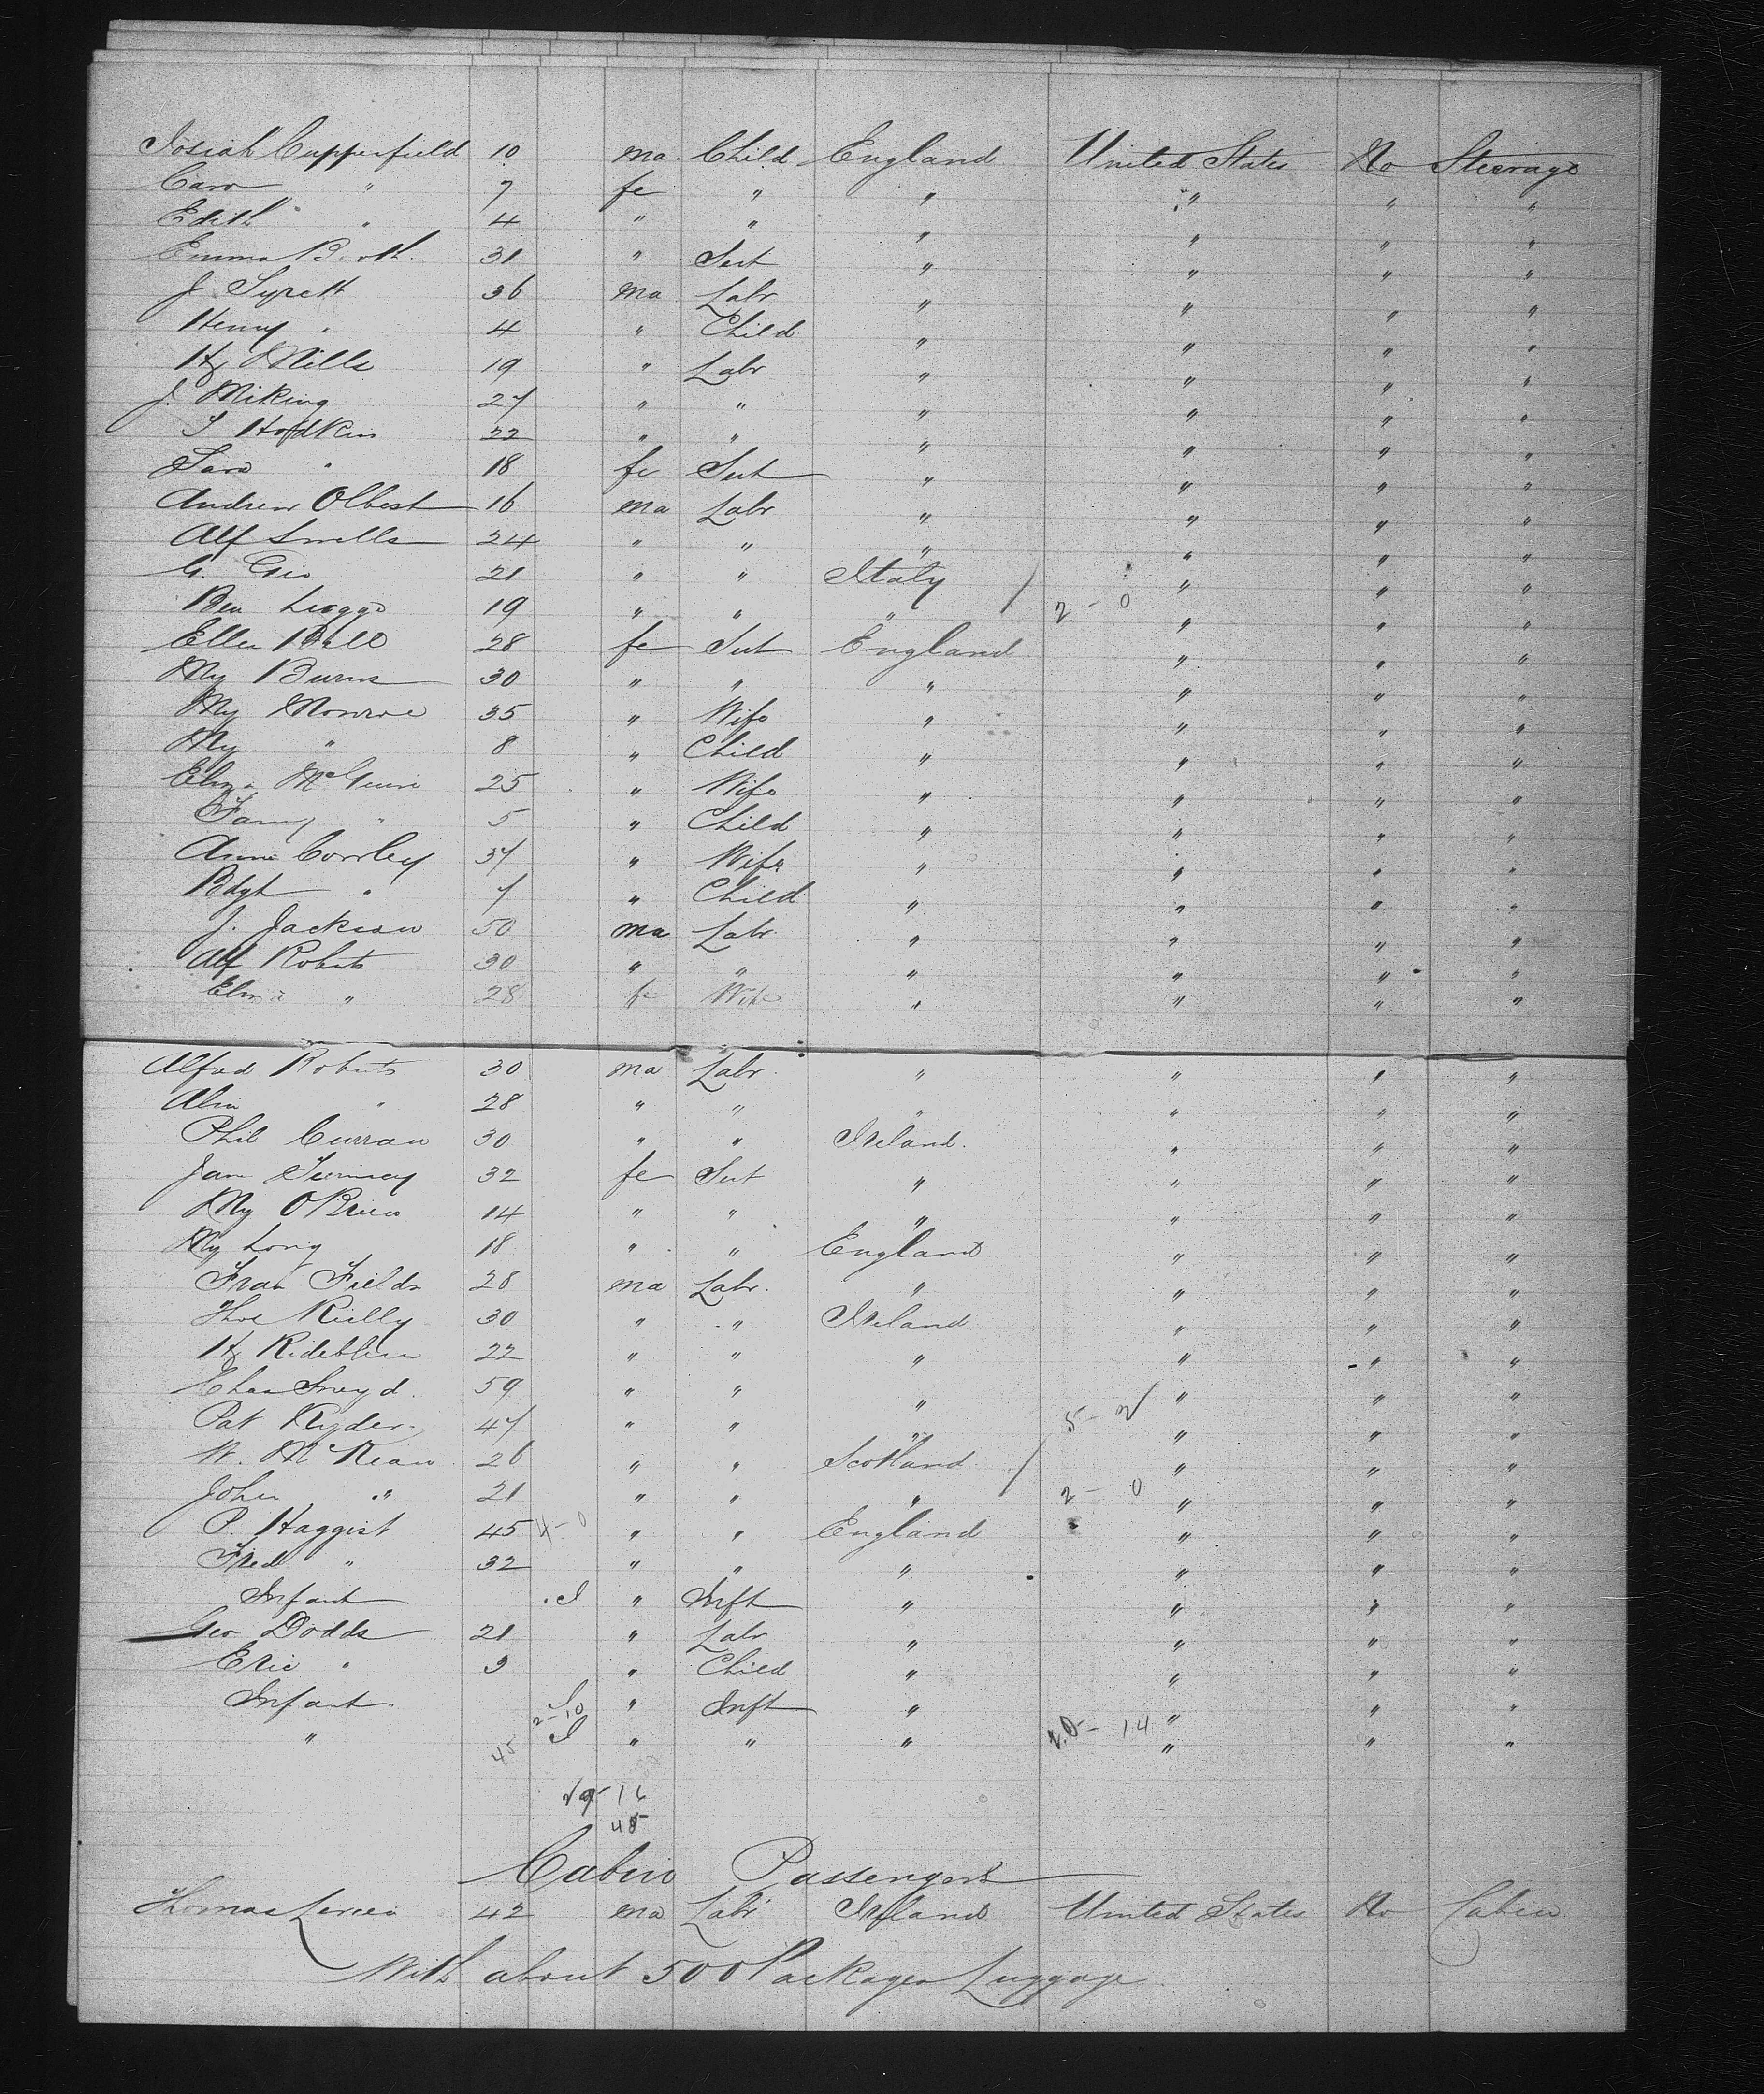 Josiah Cupperfield 10 ma Child England United States No Steerage
Caro " 7 fe " " " " "
Edith " 4 " " " " " "
Emma Booth 31 " Sert " " " "
J Syrett 36 ma Labr " " " "
Henry " 4 " Child " " " "
Hy Mills 19 " Labr " " " "
J. Miking 27 " " " " " "
S Hodkin 22 " " " " " "
Sara " 18 fe Sert " " " "
Andrew Olbest 16 ma Labr " " " "
Alf Smells 24 " " " " " "
G. Gio 21 " " Italy / " " "
Ben Luggo 19 " " " 2 - 0 " " "
Ellen Ball 28 fe Sert England " " "
My Burns 30 " " " " " "
My Monroe 35 " Wife " " " "
My " 8 " Child " " " "
Eliza McGuire 25 " Wife " " " "
Fany " 5 " Child " " " "
Anne Corrley 37 " Wife " " " "
Bdgt " 7 " Child " " " "
J. Jackson 50 ma Labr " " " "
Alf Robets 30 " " " " " "
Eliza " 28 fe Wife " " " "
Alfred Roberts 30 ma Labr " " " "
" 28 " " " " " "
Phil Curran 30 " " Ireland. " " "
Jane 32 fe Sert " " " "
My O'Brien 14 " " " " " "
My Long 18 " " England " " "
Fran Fields 28 ma Labr. " " " "
Thos Reilly 30 " " Ireland " " "
Hy 22 " " " " " "
Chas 59 " " " " " "
Pat Ryder 47 " " " 5 - 2 " " "
W. McKean 26 " " Scotland / " " "
John " 21 " " " 2 - 0 " " "
P. Haggist 45 4-0 " " England " " "
Fred " 32 " " " " " "
Infant I " Inft " " " "
Geo Dodds 21 " Labr " " " "
Eric " 3 " Child " " " "
Infant " Inft " " " "
" 45 2-10 I " " " 20 - 14 " " "
29-16
45
Cabin Passengers
Thomas 42 ma Labr Ireland United States No Cabin
With about 500 Packages Luggage